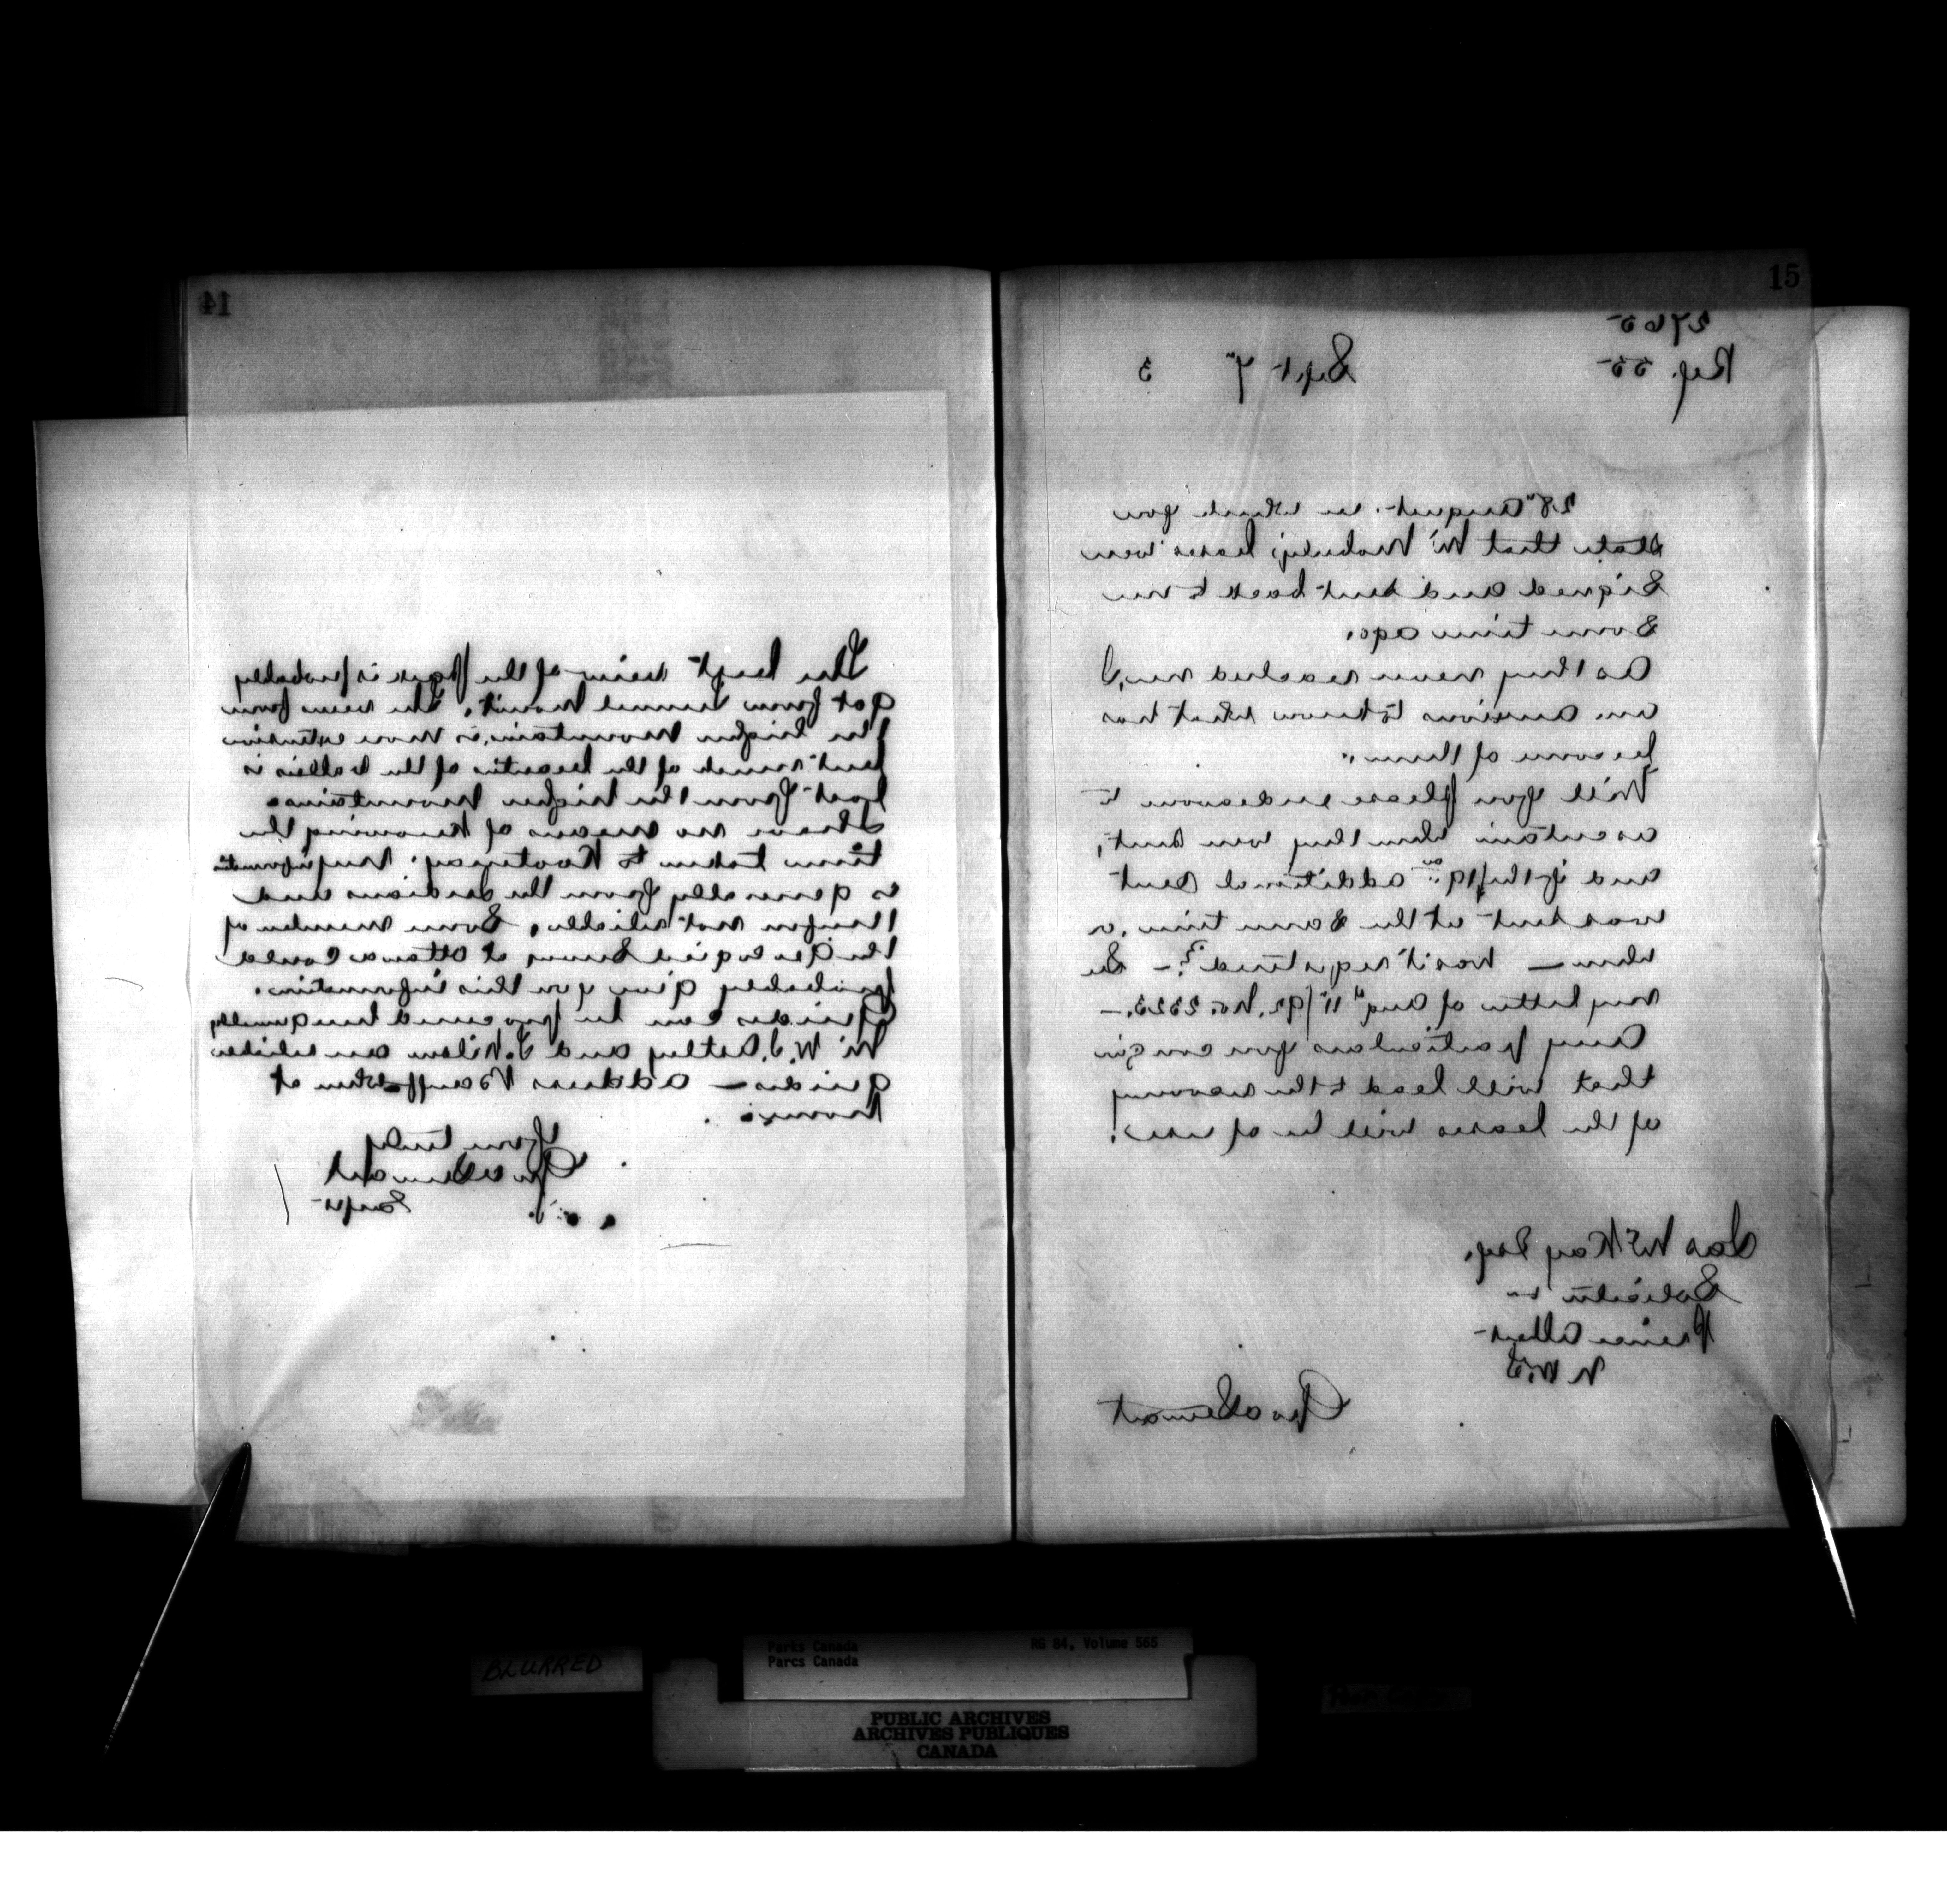 14
The best view of the Park is probably
got from Tunnel Mount. The view from
the higher mountains is more extensive
but much of the beauties of the valleys is
lost from the higher mountains.
I have no means of knowing the
time taken to Kootenay. My information
is generally from the Indians and
therefore not reliable. Some member of
the Geological Survey at Ottawa could
probably give you this information.
Guides can be procured here
Mr W. J. Astley and T. Wilson are reliable
guides — address Banff
Yours truly
Geo A Stewart
Supt
15
2765
Ref. 55
Sept 7" 3
28" August. in which you
state that Mr leases were
Signed and sent back to me
some time ago.
As they never reached me, I
am anxious to know what has
become of them.
Will you please endeavour to
ascertain when they were sent,
and if the additional sent
was sent at the same time, or
when — was it registered? — See
my letter of Aug 11"/92. No. 2323. —
Any particulars you can give
that will lead to the recovery
of the leases will be of use.
Jas McKay Esq.
Solicitor
Prince Albert
N.W.T.
Geo A Stewart
BLURRED
Parks Canada
Parcs Canada
RG 84, Volume 565
PUBLIC ARCHIVES
ARCHIVES PUBLIQUES
CANADA